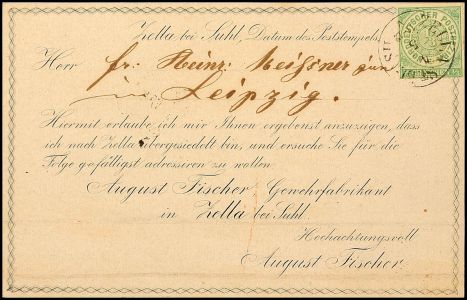 Zella bei Suhl, Datum des Poststempels.
Herr Fr: Heinr: Meissner jun
in Leipzig.
Hiermit erlaube ich mir Ihnen ergebenst anzuzeigen, dass
ich nach Zella übergesiedelt bin, und ersuche Sie für die
Folge gefälligst adressiren zu wollen
August Fischer Gewehrfabrikant
in Zella bei Suhl.
Hochachtungsvoll
August Fischer.